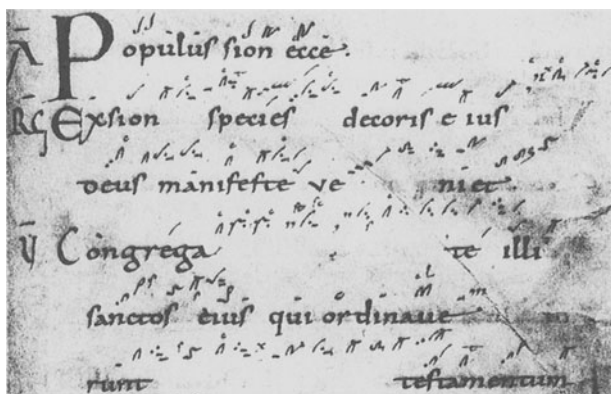 A Populus sion ecce.
RG Exsion species decoris eius
deus manifeste veniet.
V Congregate illi
sanctos eius qui ordinave
runt testamentum